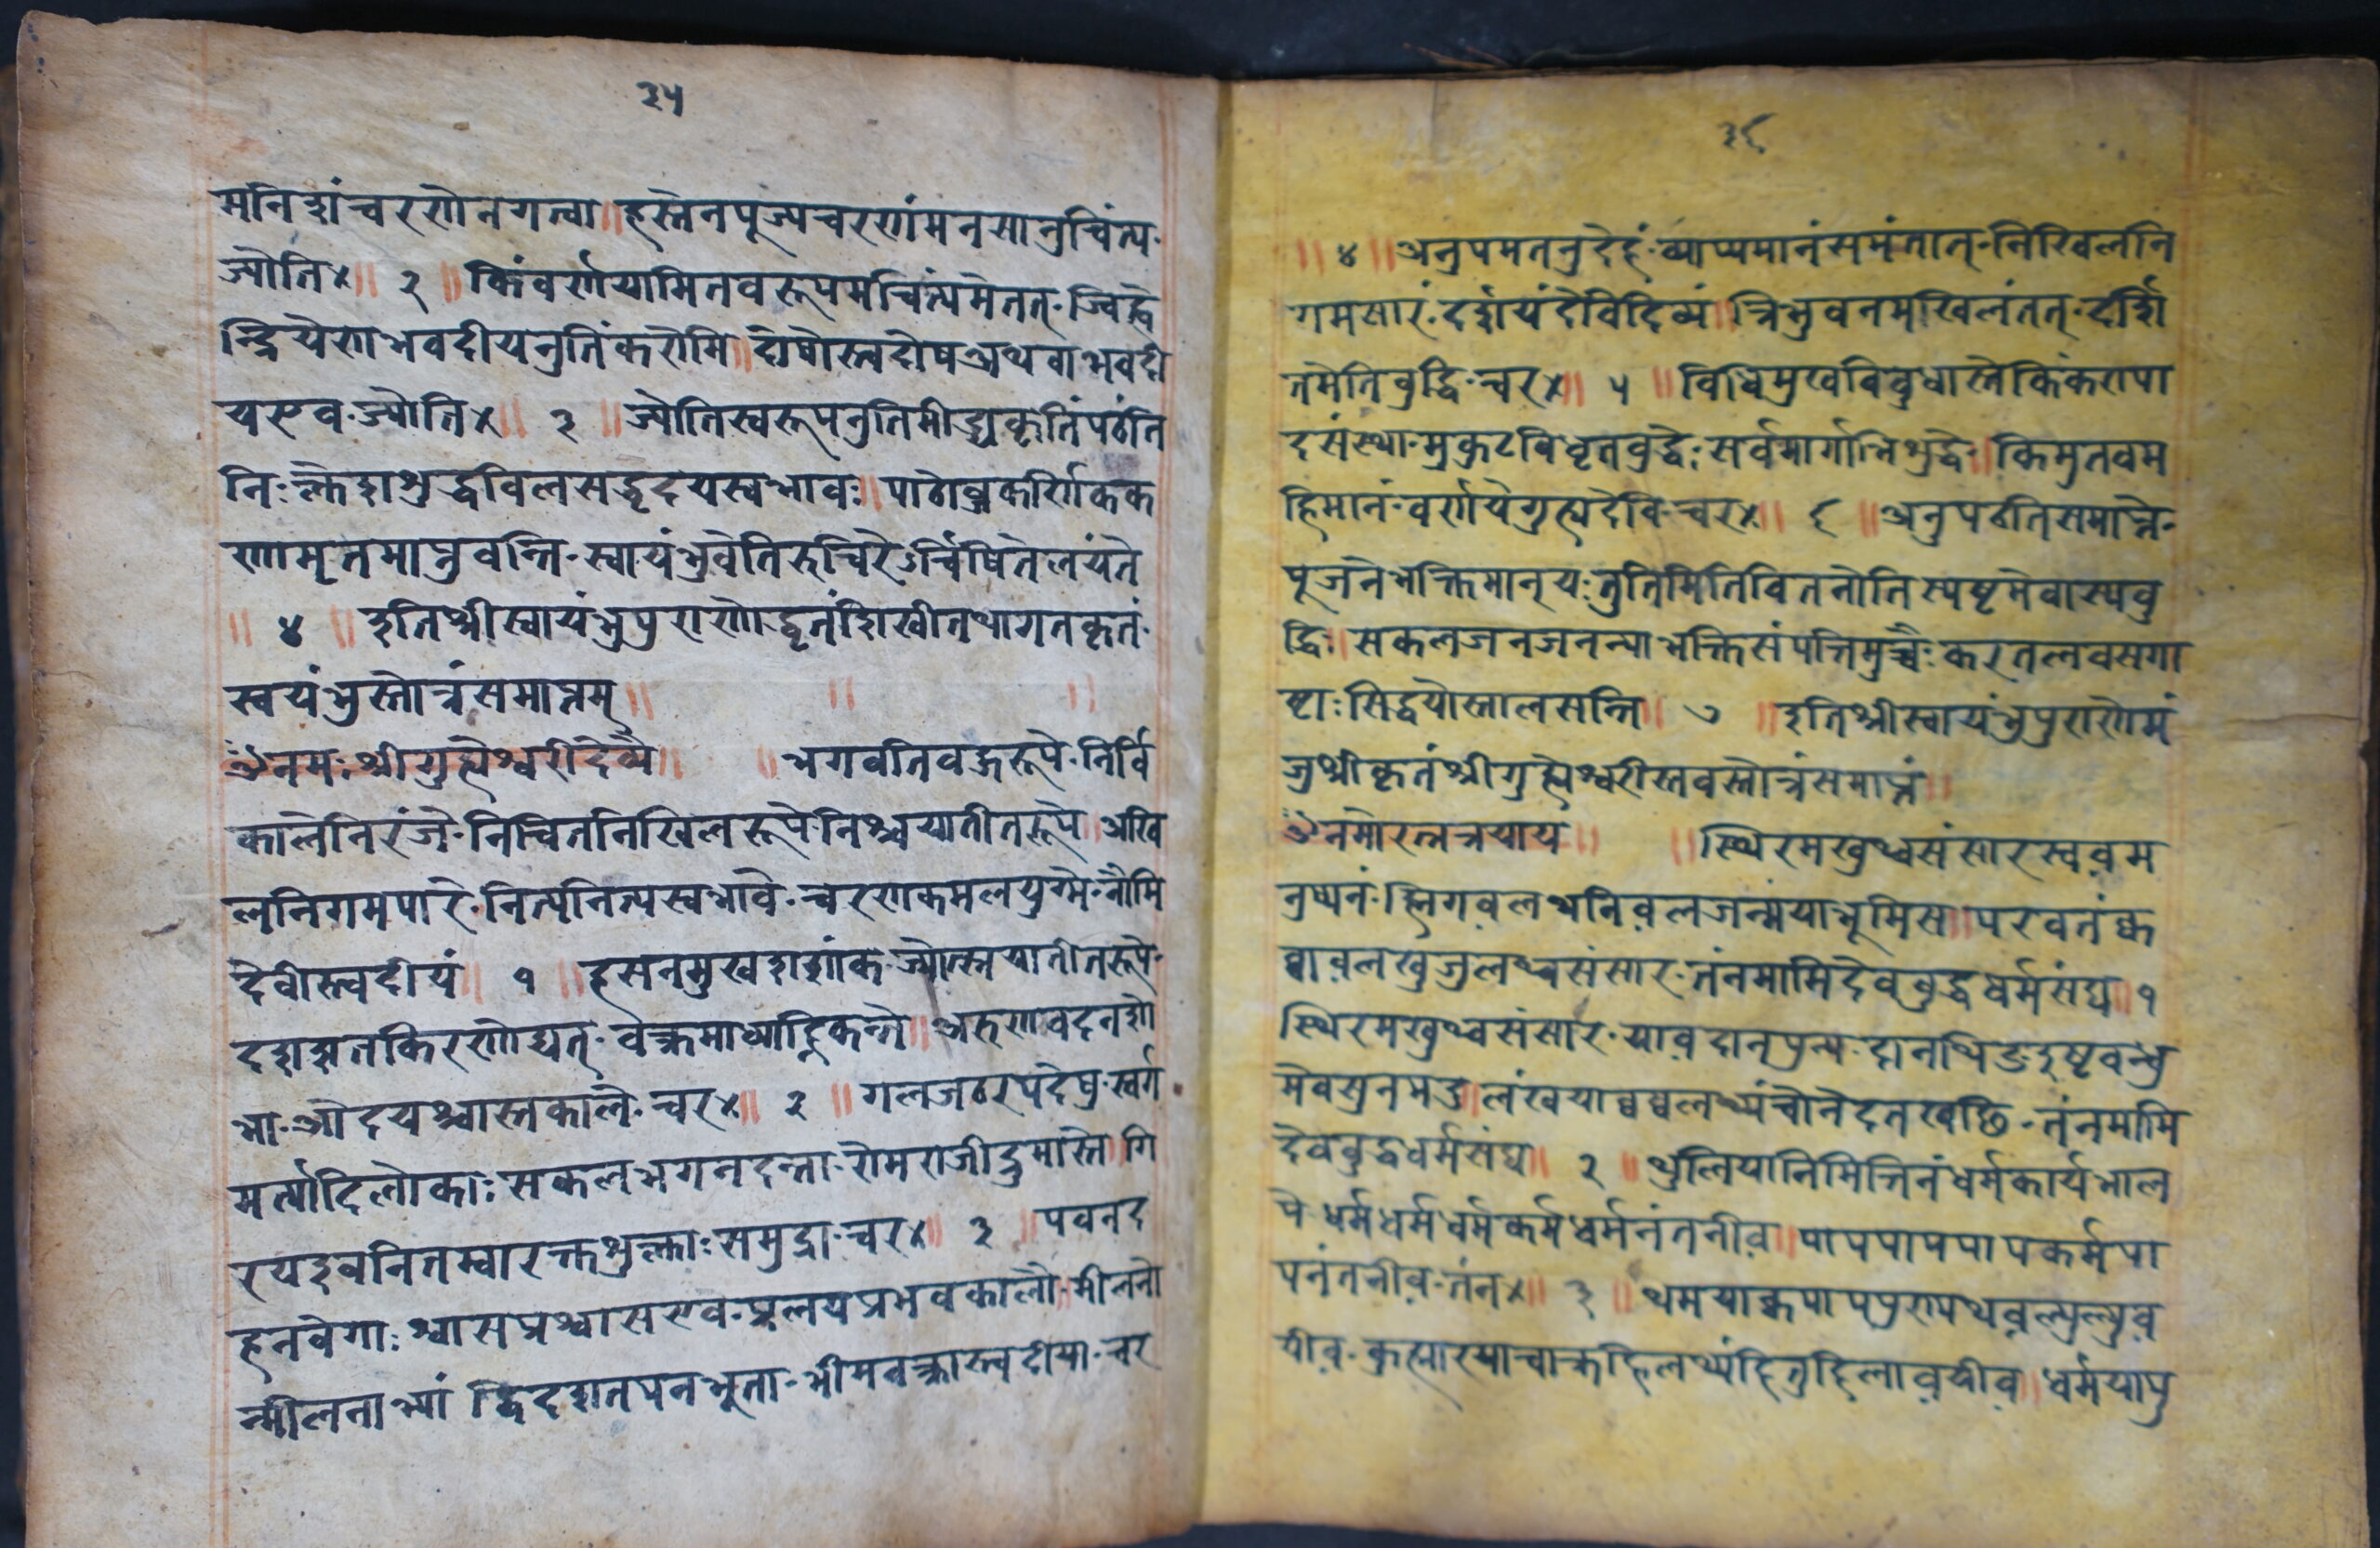 ३५
मनिशंचरणेनगत्वा॥हस्तेनपूज्यचरणंमनसानुचिंत्य·
ज्योति४॥ २ ॥किंवर्णयामितवरूपमचिंत्यमेतत्·ज्विह्वे
न्द्रियेणभवदीयनुतिंकरोमि॥दोषोस्त्वदोषअथवाभवदी
यएव·ज्योति४॥ ३ ॥ज्योतिस्वरूपनुतिमीड्यकृतिंपठंति
निःक्लेशशुद्धविलसद्धृदयस्वभावः॥पाठोब्जकर्णिकक
णामृतमाप्नुवन्ति·स्वायंभुवेतिरुचिरेऽर्चिषितेलयंते
॥ ४ ॥इतिश्रीस्वायंभुपुराणोद्धृतंशिखीतथागतकृतं·
स्वयंभुस्तोत्रंसमाप्तम्॥ ॥ ॥
ॐनमःश्रीगुह्येश्वरीदेव्यै॥ ॥भगवतिवहुरूपे·निर्वि
कालेनिरंजे·निचितनिखिलरूपेनिश्चयातीतरूपे॥अखि
लनिगमपारे·नित्यनित्यस्वभावे·चरणकमलयुग्मे·नौमि
देवीत्वदीयं॥ १ ॥हसनमुखशशांक·ज्योत्स्नयातीतरूपे·
दशशतकिरणोद्यत्·वक्त्रमाध्याह्निकन्ते॥अरुणवदनशो
भा·औदयश्चास्तकाले·चर४॥ २ ॥गलजठरपदेषु·स्वर्ग
मर्त्यादिलोकाः·सकलभगनदन्ता·रोमराजीद्रुमास्ते॥गि
रयइवनितम्वारक्तशुक्लाः·समुद्रा·चर४॥ ३ ॥पवनद
हनवेगाः·श्वासप्रश्वासएव·प्रलयप्रभवकालो·मीलनो
न्मीलनाभ्यां॥द्विदशतपनभूता·भीमवक्त्रास्त्वदीया·चर
३६
॥ ४ ॥अनुपमतनुदेहं·व्याप्यमानंसमंतात्·निखिलनि
गमसारं·दर्शयंदेविदिव्यं॥त्रिभुवनमखिलंतत्·दर्शि
तमेतिवुद्धि·चर४॥ ५ ॥विधिमुखविवुधास्तेकिंकरापा
दसंस्था·मुकुटविधृतवुद्धेः·सर्वमार्गाभिशुद्धे॥किमुतवम
हिमानं·वर्णयेगुह्यदेवि·चर४॥ ६ ॥अनुपठतिसमाप्ते·
पूजनेभक्तिमान्य·तुतिमितिवितनोतिस्पष्टमेवास्यवु
द्धि॥सकलजनजनन्याभक्तिसंपत्तिमुच्चैः·करतलवसगा
ष्टाःसिद्धयोस्तालसन्ति॥ ७ ॥इतिश्रीस्वायंभुपुराणेमं
जुश्रीकृतंश्रीगुह्येश्वरीस्तवस्तोत्रंसमाप्तं॥
ॐनमोरत्नत्रयाय॥ ॥स्थिरमखुथ्वसंसारस्वव़म
नुष्यनं·ह्निगव़लथनिव़लजन्मयाभूमिस॥परवतंक्व
व्वाव़लखुजुलथ्वसंसार·तंनमामिदेववुद्धधर्मसंघ॥१
स्थिरमखुथ्वसंसार·याव़दान्पुन्य·दानथिङइष्टवन्धु
मेवगुनमदु॥लंखयाव्वष्वलथ्यंचोनेदतखछि·तंनमामि
देववुद्धधर्मसंघ॥ २ ॥थुलियानिमित्तिनंधर्मकार्यभाल
पे·धर्मधर्मधर्मकर्मधर्मनंतनीव़॥पापपापपापकर्मपा
पनंतनीव़·तंन४॥ ३ ॥थमयाक्वपापपुण्यथव़ल्युल्युव़
यीव़·कुह्मारयाचाकहिलथ्यंहितुहिलाव़यीव़॥धर्मयापु